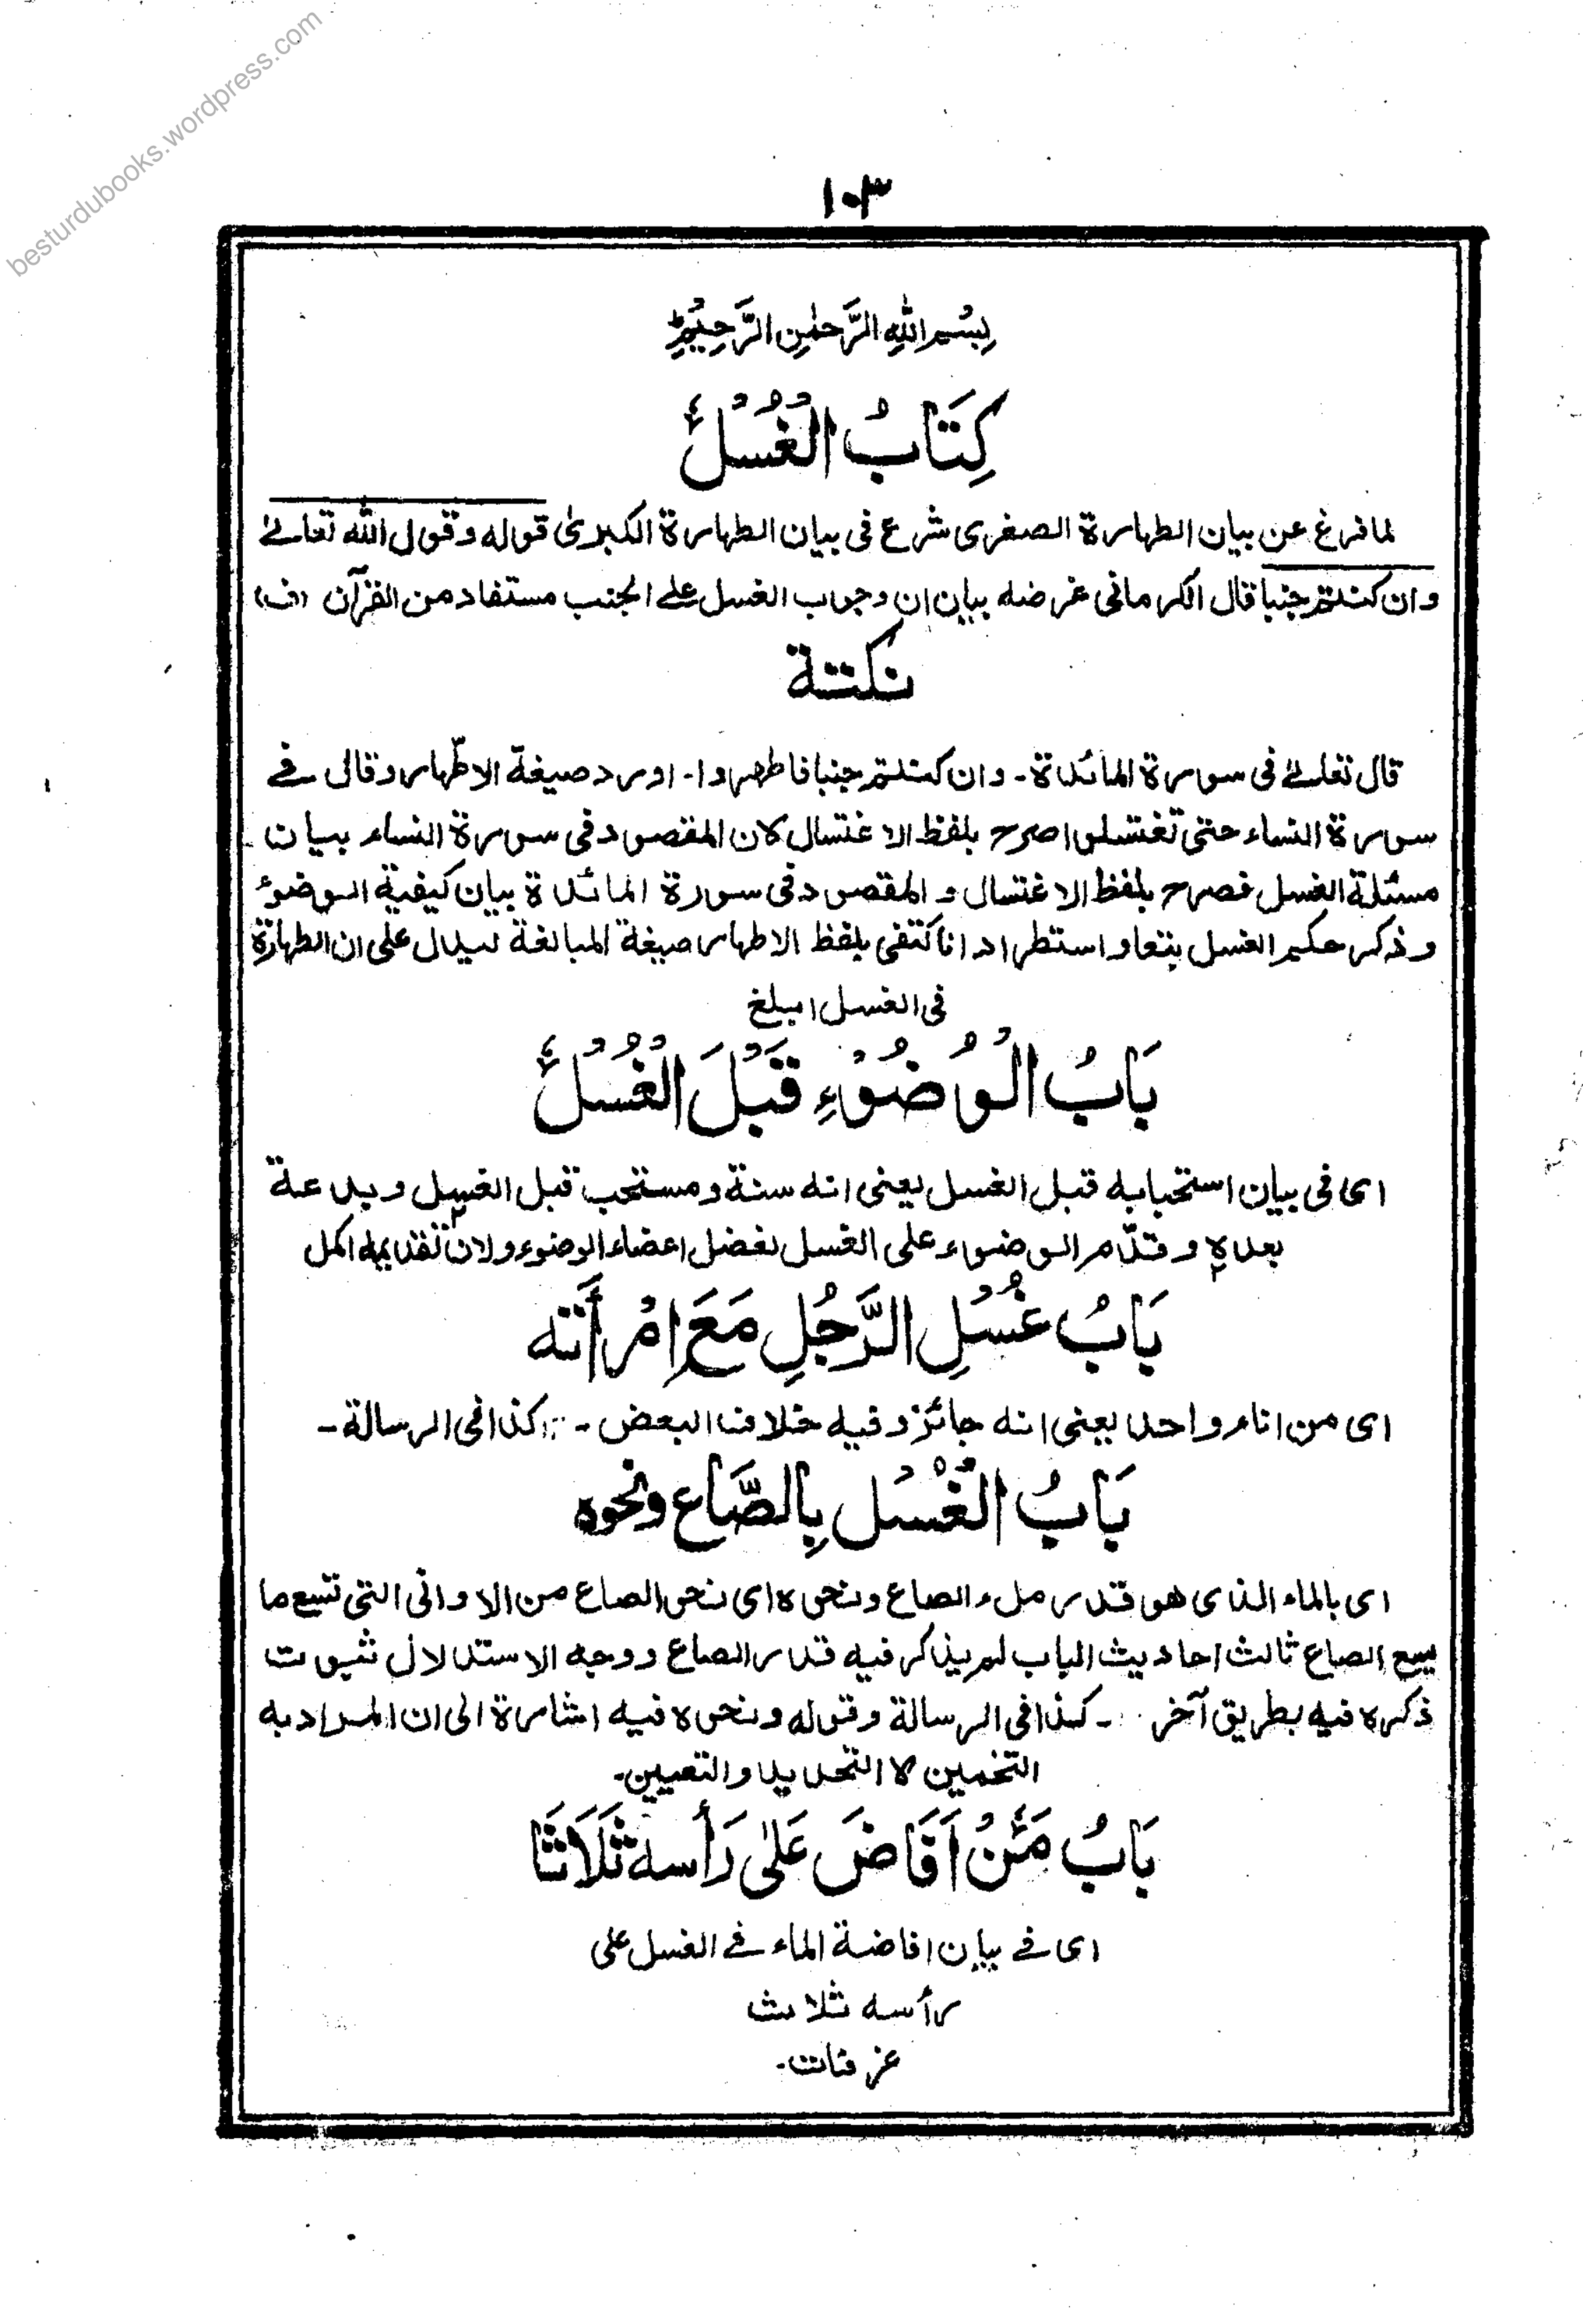 besturdubooks.wordpress.com
۱۰۳
بِسْمِ اللهِ الرَّحْمٰنِ الرَّحِیْمِ
كِتَابُ الْغُسْلِ
لما فرغ عن بيان الطهارة الصغرى شرع فى بيان الطهارة الكبرىٰ قوله وقول الله تعالےٰ
وان كنتم جنبا قال الكرمانى غرضه بيان ان وجوب الغسل علے الجنب مستفاد من القرآن (ف)
نكتة
قال تعالےٰ فى سورة المائدة۔ وان كنتم جنبا فاطهروا۔ اورد صيغة الاطّهار وقال فے
سورة النساء حتى تغتسلوا صرح بلفظ الاغتسال لان المقصود فى سورة النساء بيان
مسئلة الغسل فصرح بلفظ الاغتسال و المقصود فى سورة المائدة بيان كيفية الوضوء
و ذكر حكم الغسل بتعا و استطرادا اناكتفى بلفظ الاطهار صيغة المبالغة ليدل على ان الطهارة
فى الغسل ابلغ
بَابُ الْوُضُوْءِ قَبْلَ الْغُسْلِ
اى فى بيان استحبابه قبل الغسل يعنى انه سنة و مستحب قبل الغسل و بدعة
بعده و قدّم الوضوء على الغسل لفضل اعضاء الوضوء ولان تقديمه اكمل
بَابُ غُسْلِ الرَّجُلِ مَعَ اِمْرأَته
اى من اناء واحد يعنى انه جائز و فيه خلاف البعض ۔ كذا فى الرسالة ۔
بَابُ الْغُسْلِ بِالصَّاع ونحوه
اى بالماء الذى هو قدر ملء الصاع و نحوه اى نحو الصاع من الاوانى التى تسع ما
يسع الصاع ثالث احاديث الباب لم يذكر فيه قدر الصاع و وجه الاستدلال ثبوت
ذكره فيه بطريق آخر ۔ كذا فى الرسالة و قوله و نحوه فيه اشارة الى ان المراد به
التخمين لا التحديد والتعيين۔
بَابُ مَنْ اَفَاضَ عَلىٰ رَأسه ثَلَاثًا
اى فے بيان افاضة الماء فے الغسل على
رأسه ثلاث
غرفات۔